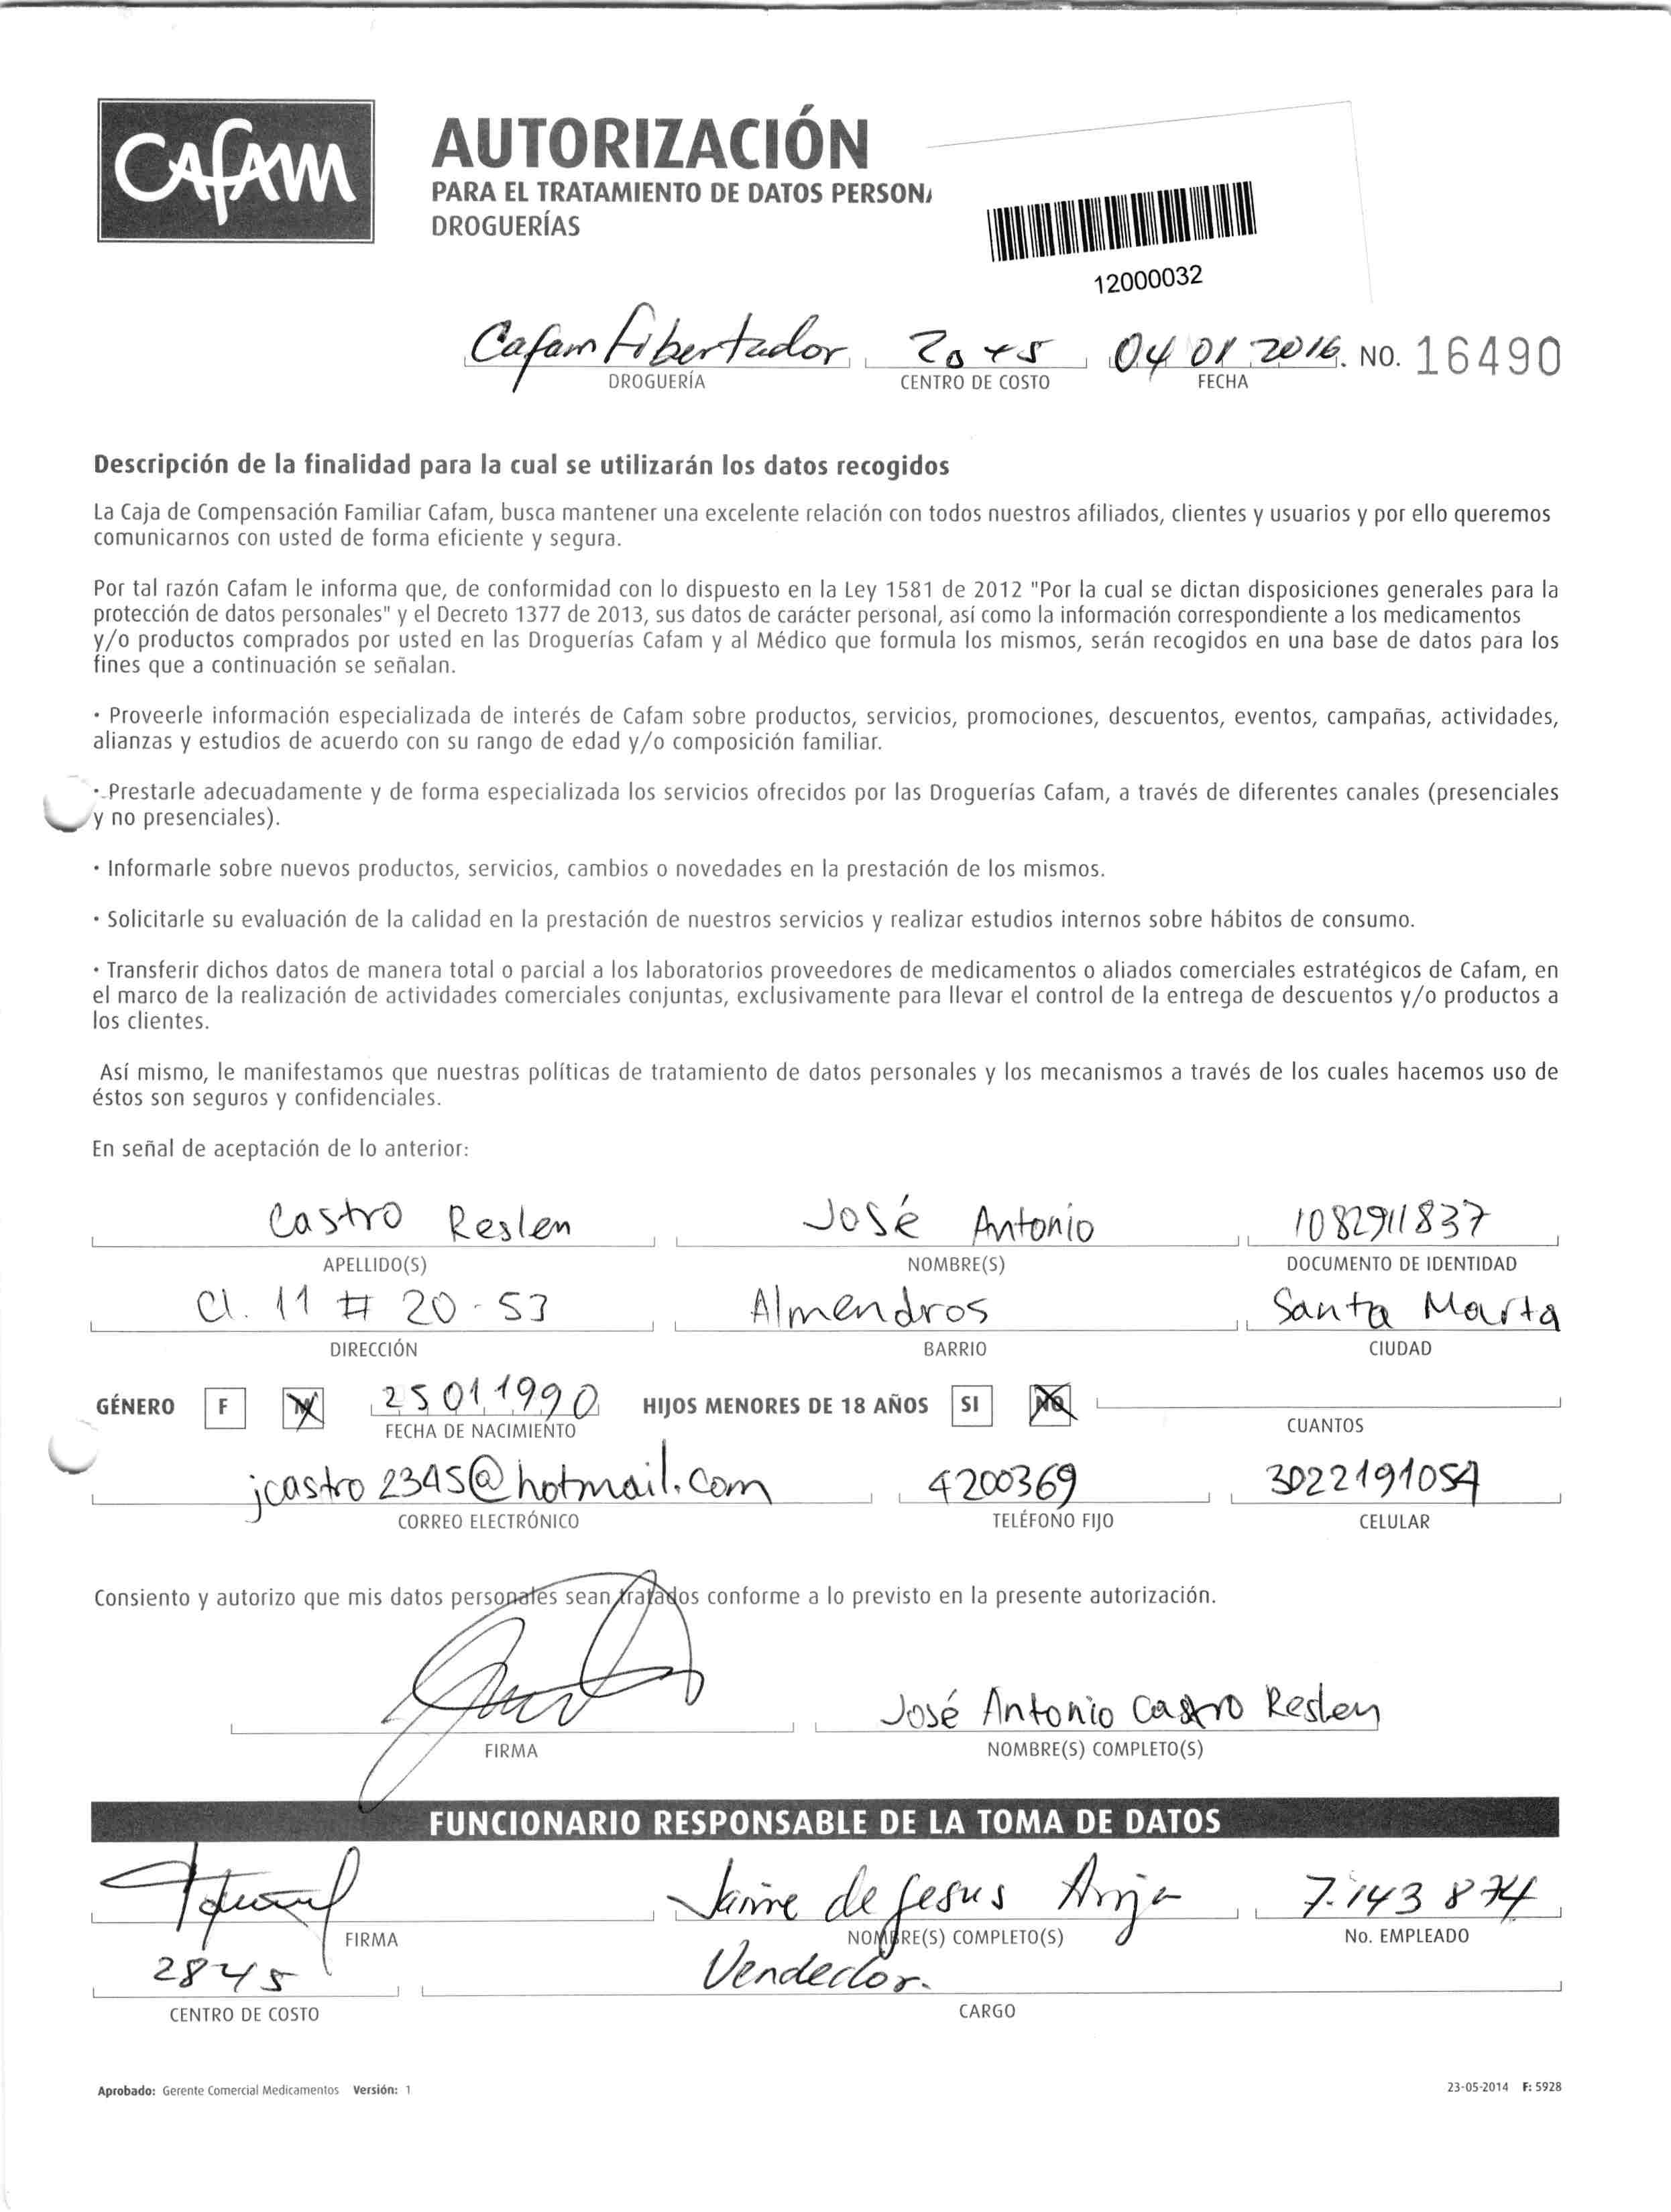 CAFAM
AUTORIZACIÓN
PARA EL TRATAMIENTO DE DATOS PERSONA
DROGUERÍAS
12000032
Cafam Libertador 04 01 2016. NO. 16490
DROGUERÍA CENTRO DE COSTO FECHA
Descripción de la finalidad para la cual se utilizarán los datos recogidos
La Caja de Compensación Familiar Cafam, busca mantener una excelente relación con todos nuestros afiliados, clientes y usuarios y por ello queremos
comunicarnos con usted de forma eficiente y segura.
Por tal razón Cafam le informa que, de conformidad con lo dispuesto en la Ley 1581 de 2012 "Por la cual se dictan disposiciones generales para la
protección de datos personales" y el Decreto 1377 de 2013, sus datos de carácter personal, así como la información correspondiente a los medicamentos
y/o productos comprados por usted en las Droguerías Cafam y al Médico que formula los mismos, serán recogidos en una base de datos para los
fines que a continuación se señalan.
· Proveerle información especializada de interés de Cafam sobre productos, servicios, promociones, descuentos, eventos, campañas, actividades,
alianzas y estudios de acuerdo con su rango de edad y/o composición familiar.
· Prestarle adecuadamente y de forma especializada los servicios ofrecidos por las Droguerías Cafam, a través de diferentes canales (presenciales
y no presenciales).
· Informarle sobre nuevos productos, servicios, cambios o novedades en la prestación de los mismos.
· Solicitarle su evaluación de la calidad en la prestación de nuestros servicios y realizar estudios internos sobre hábitos de consumo.
· Transferir dichos datos de manera total o parcial a los laboratorios proveedores de medicamentos o aliados comerciales estratégicos de Cafam, en
el marco de la realización de actividades comerciales conjuntas, exclusivamente para llevar el control de la entrega de descuentos y/o productos a
los clientes.
Así mismo, le manifestamos que nuestras políticas de tratamiento de datos personales y los mecanismos a través de los cuales hacemos uso de
éstos son seguros y confidenciales.
En señal de aceptación de lo anterior:
Castro Reslen José Antonio 1082911837
APELLIDO(S) NOMBRE(S) DOCUMENTO DE IDENTIDAD
Cl. 11 # 20-53 Almendros Santa Marta
DIRECCIÓN BARRIO CIUDAD
GÉNERO F M 25 01 1990 HIJOS MENORES DE 18 AÑOS SI NO
FECHA DE NACIMIENTO CUANTOS
jcastro2345@hotmail.com 4200369 3022191054
CORREO ELECTRÓNICO TELÉFONO FIJO CELULAR
Consiento y autorizo que mis datos personales sean tratados conforme a lo previsto en la presente autorización.
José Antonio Castro Reslen
FIRMA NOMBRE(S) COMPLETO(S)
FUNCIONARIO RESPONSABLE DE LA TOMA DE DATOS
Jaime de Jesus 7.143 874
FIRMA NOMBRE(S) COMPLETO(S) No. EMPLEADO
2845 Vendedor.
CENTRO DE COSTO CARGO
Aprobado: Gerente Comercial Medicamentos Versión: 1 23-05-2014 F: 5928